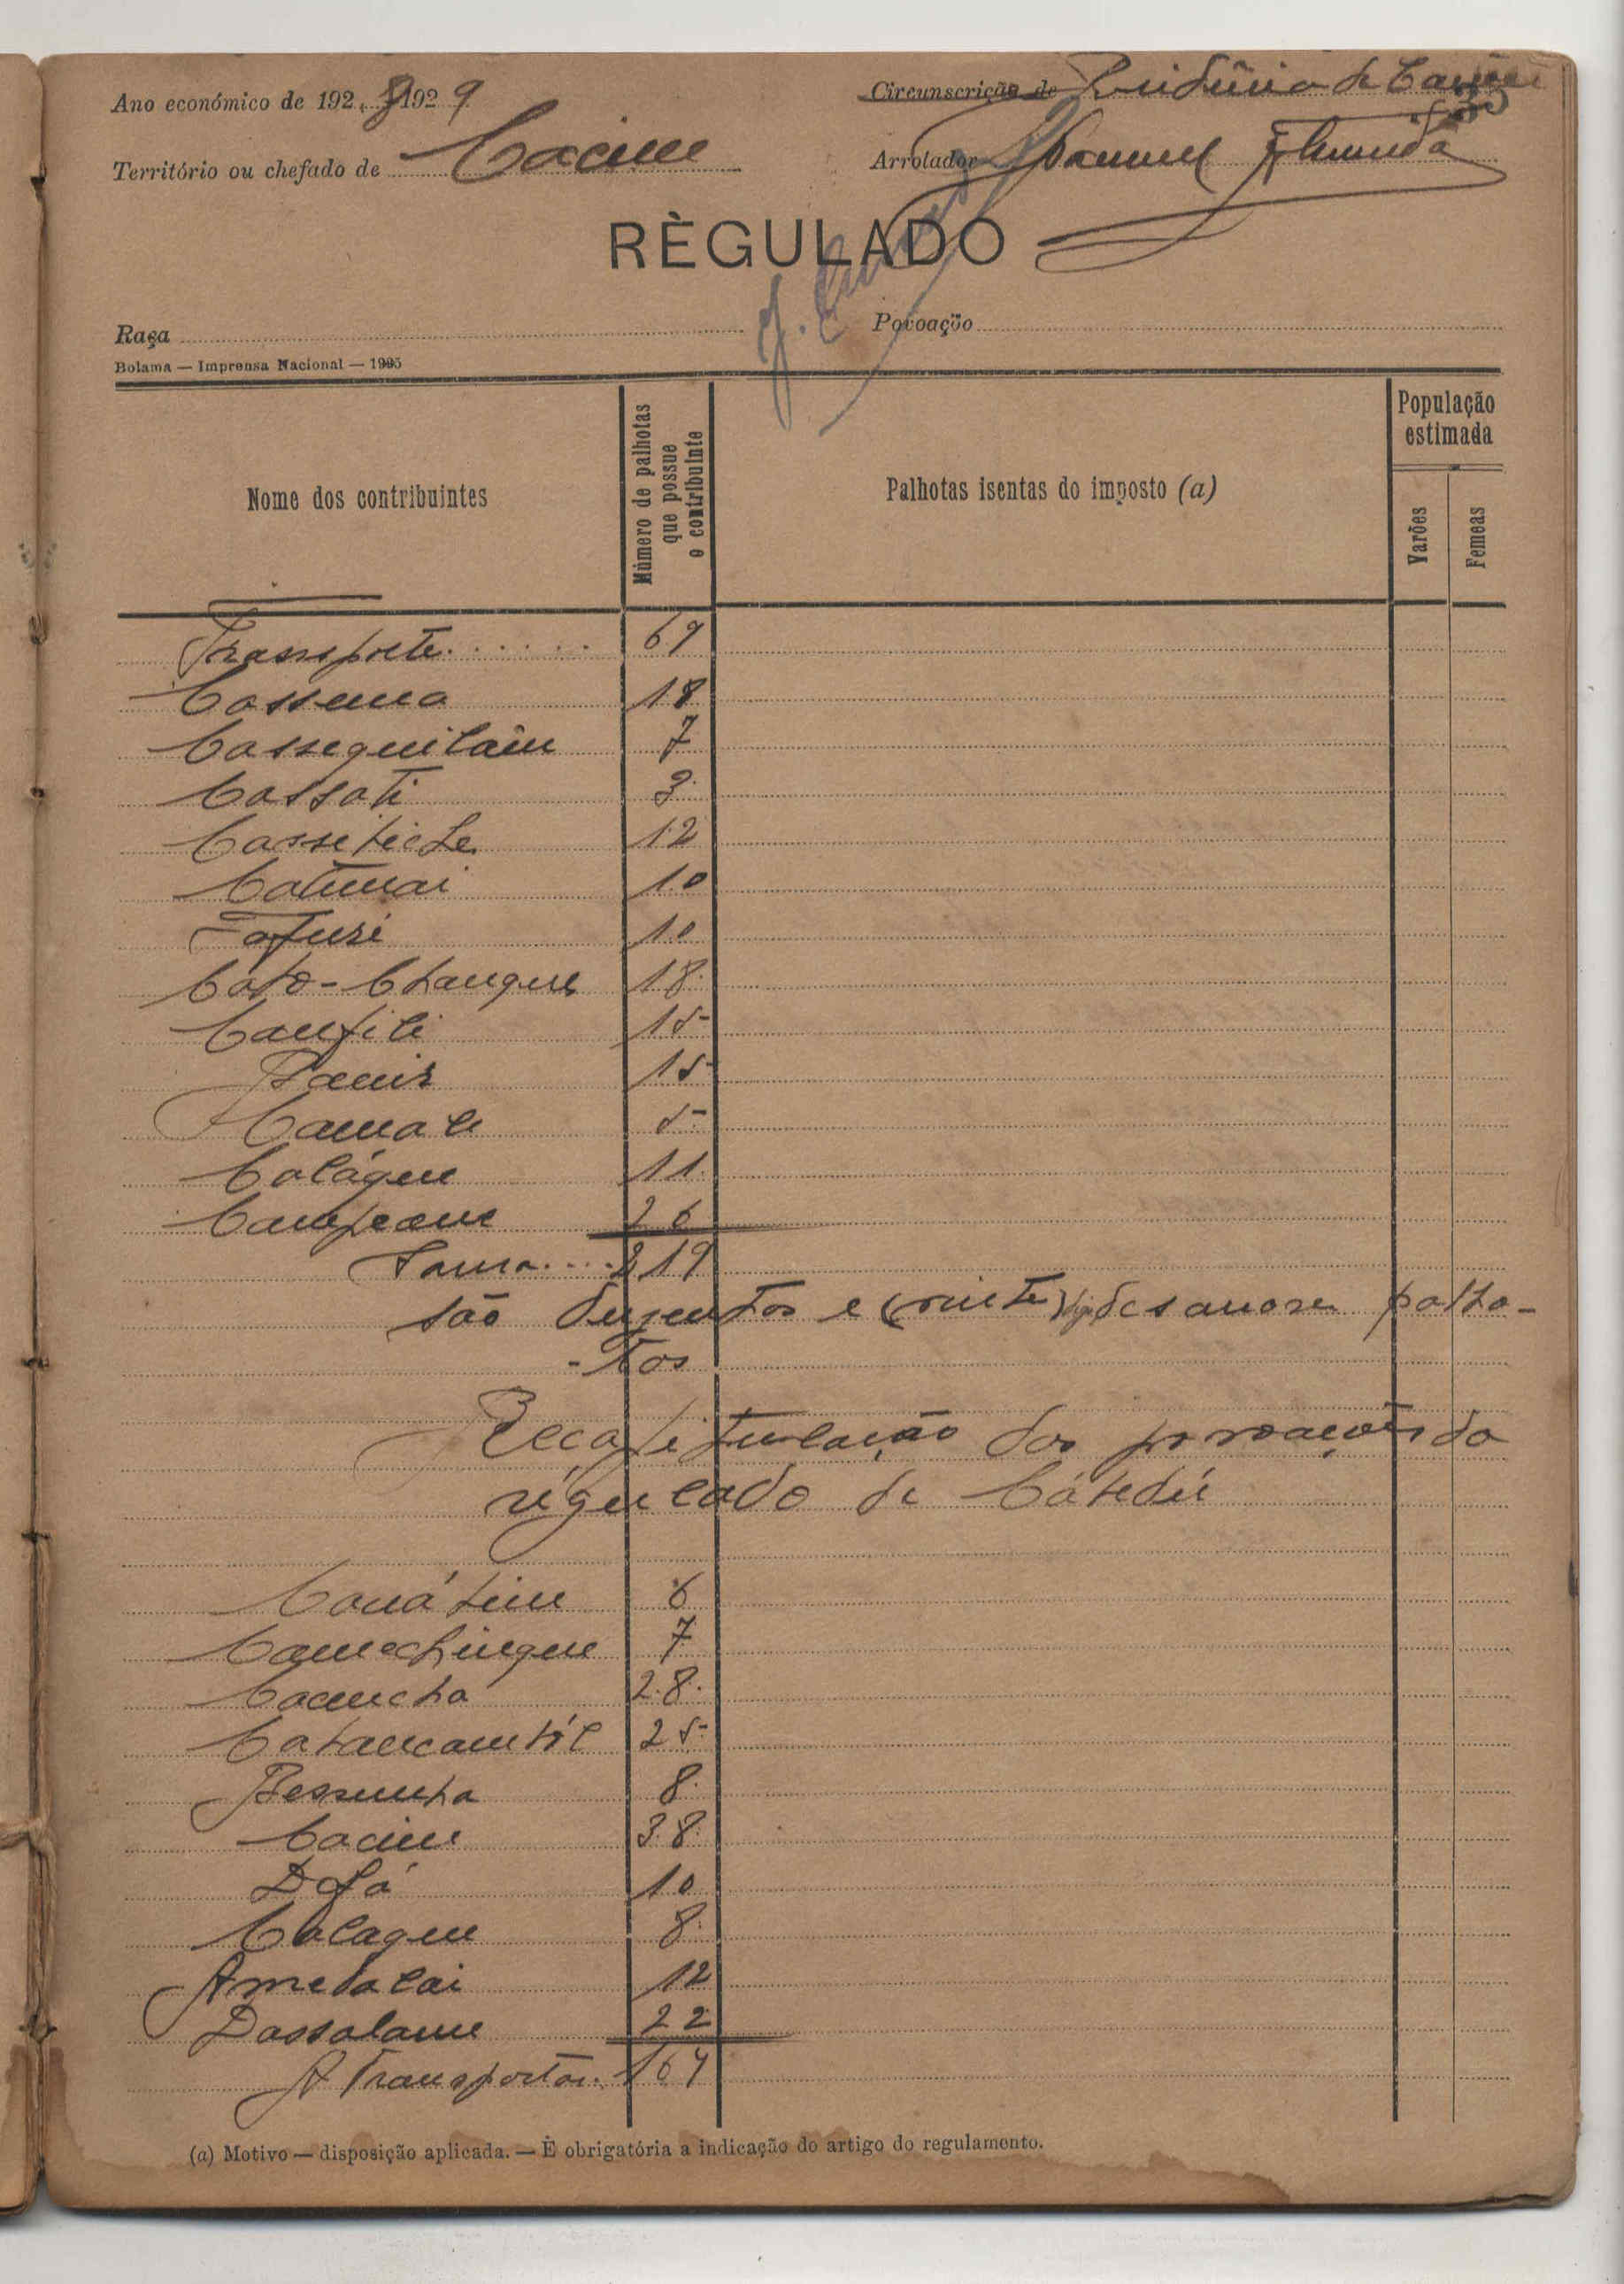 Ano económico de 1928 1929
Circunscrição de Residência de Cacine
33
Território ou chefado de Cacine
Arrolador Manuel Almeida
RÈGULADO
Raça
Povoação
Bolama — Imprensa Nacional — 1925
Nome dos contribuintes
Número de palhotas que possue o contribuinte
Palhotas isentas do imposto (a)
População estimada
Varões
Femeas
Transporte...... 69
Cassema 18
Cassequilaim 7
Cassati 3
Cassetiche 12
Catumai 10
Cafusi 10
Cato-Changue 18
Canfili 15
Ramis 15
Camale 5
Calágue 11
Campeane 26
Soma.... 219
são duzentos e (vinte) digo desanove palho-
-tas
Recapitulação das povoações do
régulado de Cátedú
Canátine 6
Camechingue 7
Caamcha 28
Catancantil 25
Bessunha 8
Cacine 38
Dafá 10
Calague 8
Ametalai 12
Dassalame 22
A Transportar.. 164
(a) Motivo — disposição aplicada. — É obrigatória a indicação do artigo do regulamento.